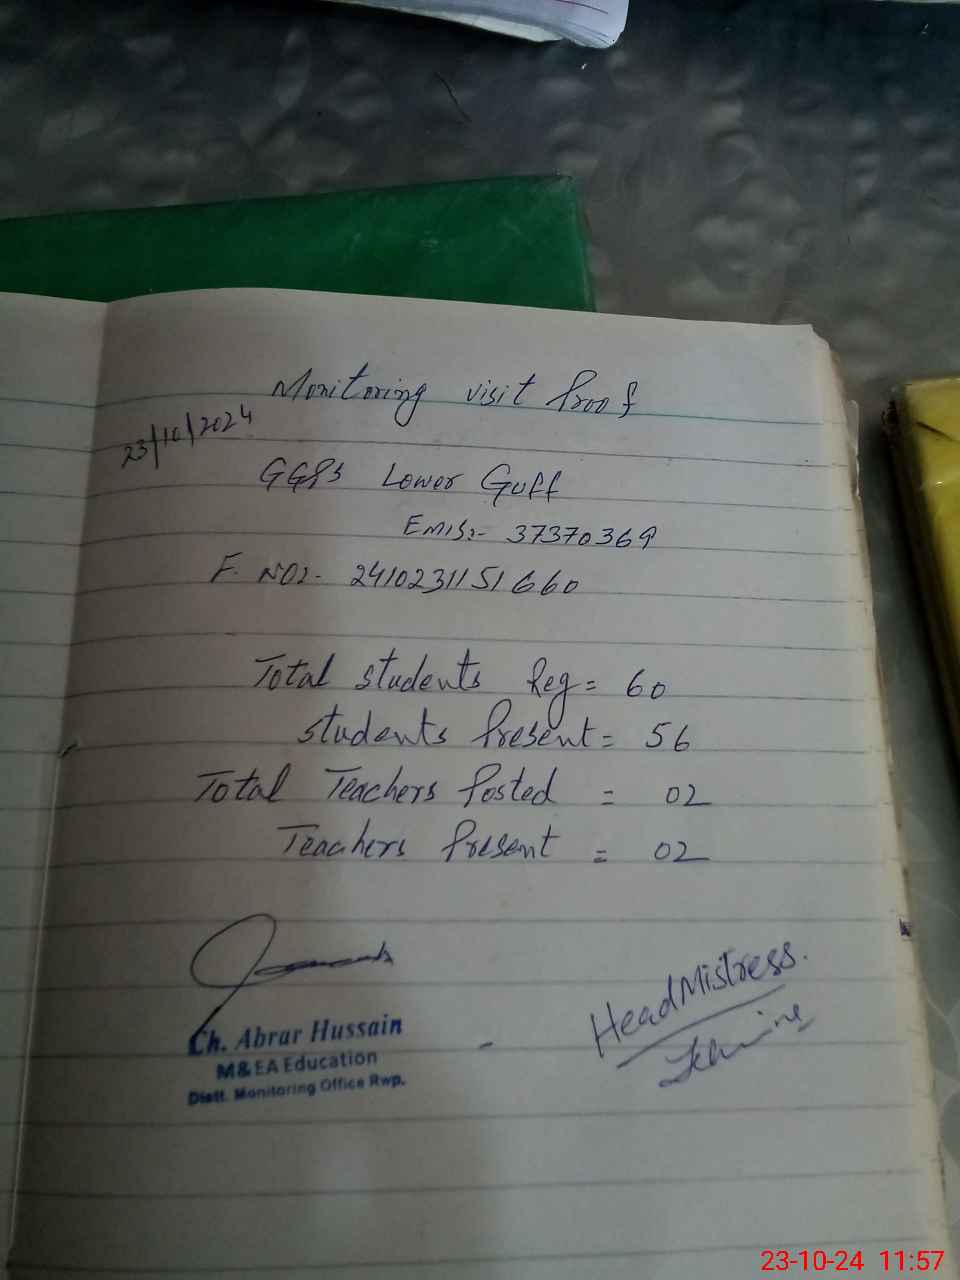 Monitoring visit Proof
23/10/2024
GGPS Lower Guff
EMIS:- 37370369
F. NO:- 2410231151660
Total students Reg = 60
students Present = 56
Total Teachers Posted = 02
Teachers Present = 02
Ch. Abrar Hussain
M&EA Education
Distt. Monitoring Office Rwp.
HeadMistress.
23-10-24 11:57